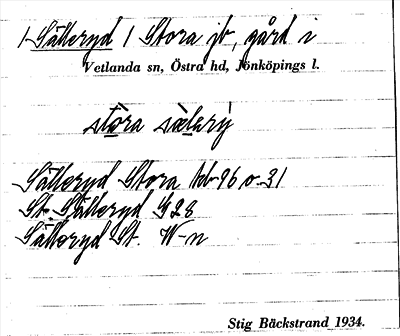 /-Sälleryd / Stora jb, gård i
Vetlanda sn, Östra hd, Jönköpings l.
stora sælery
Sälleryd Stora hb 96 o 31
St. Sälleryd G 28
Sälleryd St. W-n
Stig Bäckstrand 1934.